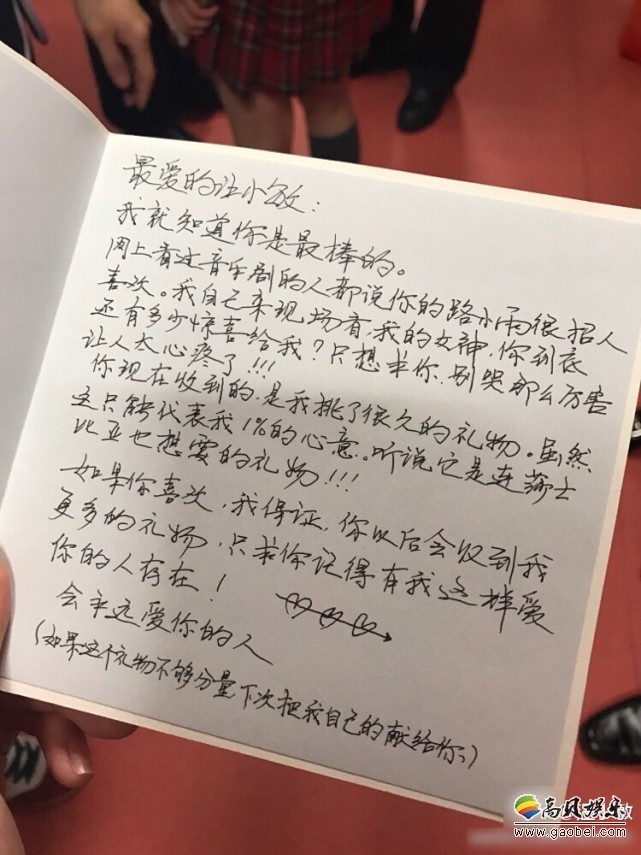 最爱的汪小敏：
我就知道你是最棒的。
网上看过音乐剧的人都说你的路小雨很招人
喜欢。我自己来现场看，我的女神，你到底
还有多少惊喜给我？只想求你，别哭那么厉害
让人太心疼了！！！
你现在收到的，是我挑了很久的礼物。虽然
这只能代表我1%的心意。听说它是连莎士
比亚也想要的礼物！！！
如果你喜欢，我保证，你以后会收到我
更多的礼物，只求你记得有我这样爱
你的人存在！
会永远爱你的人
（如果这个礼物不够分量下次把我自己的献给你）
高贝娱乐
www.gaobei.com